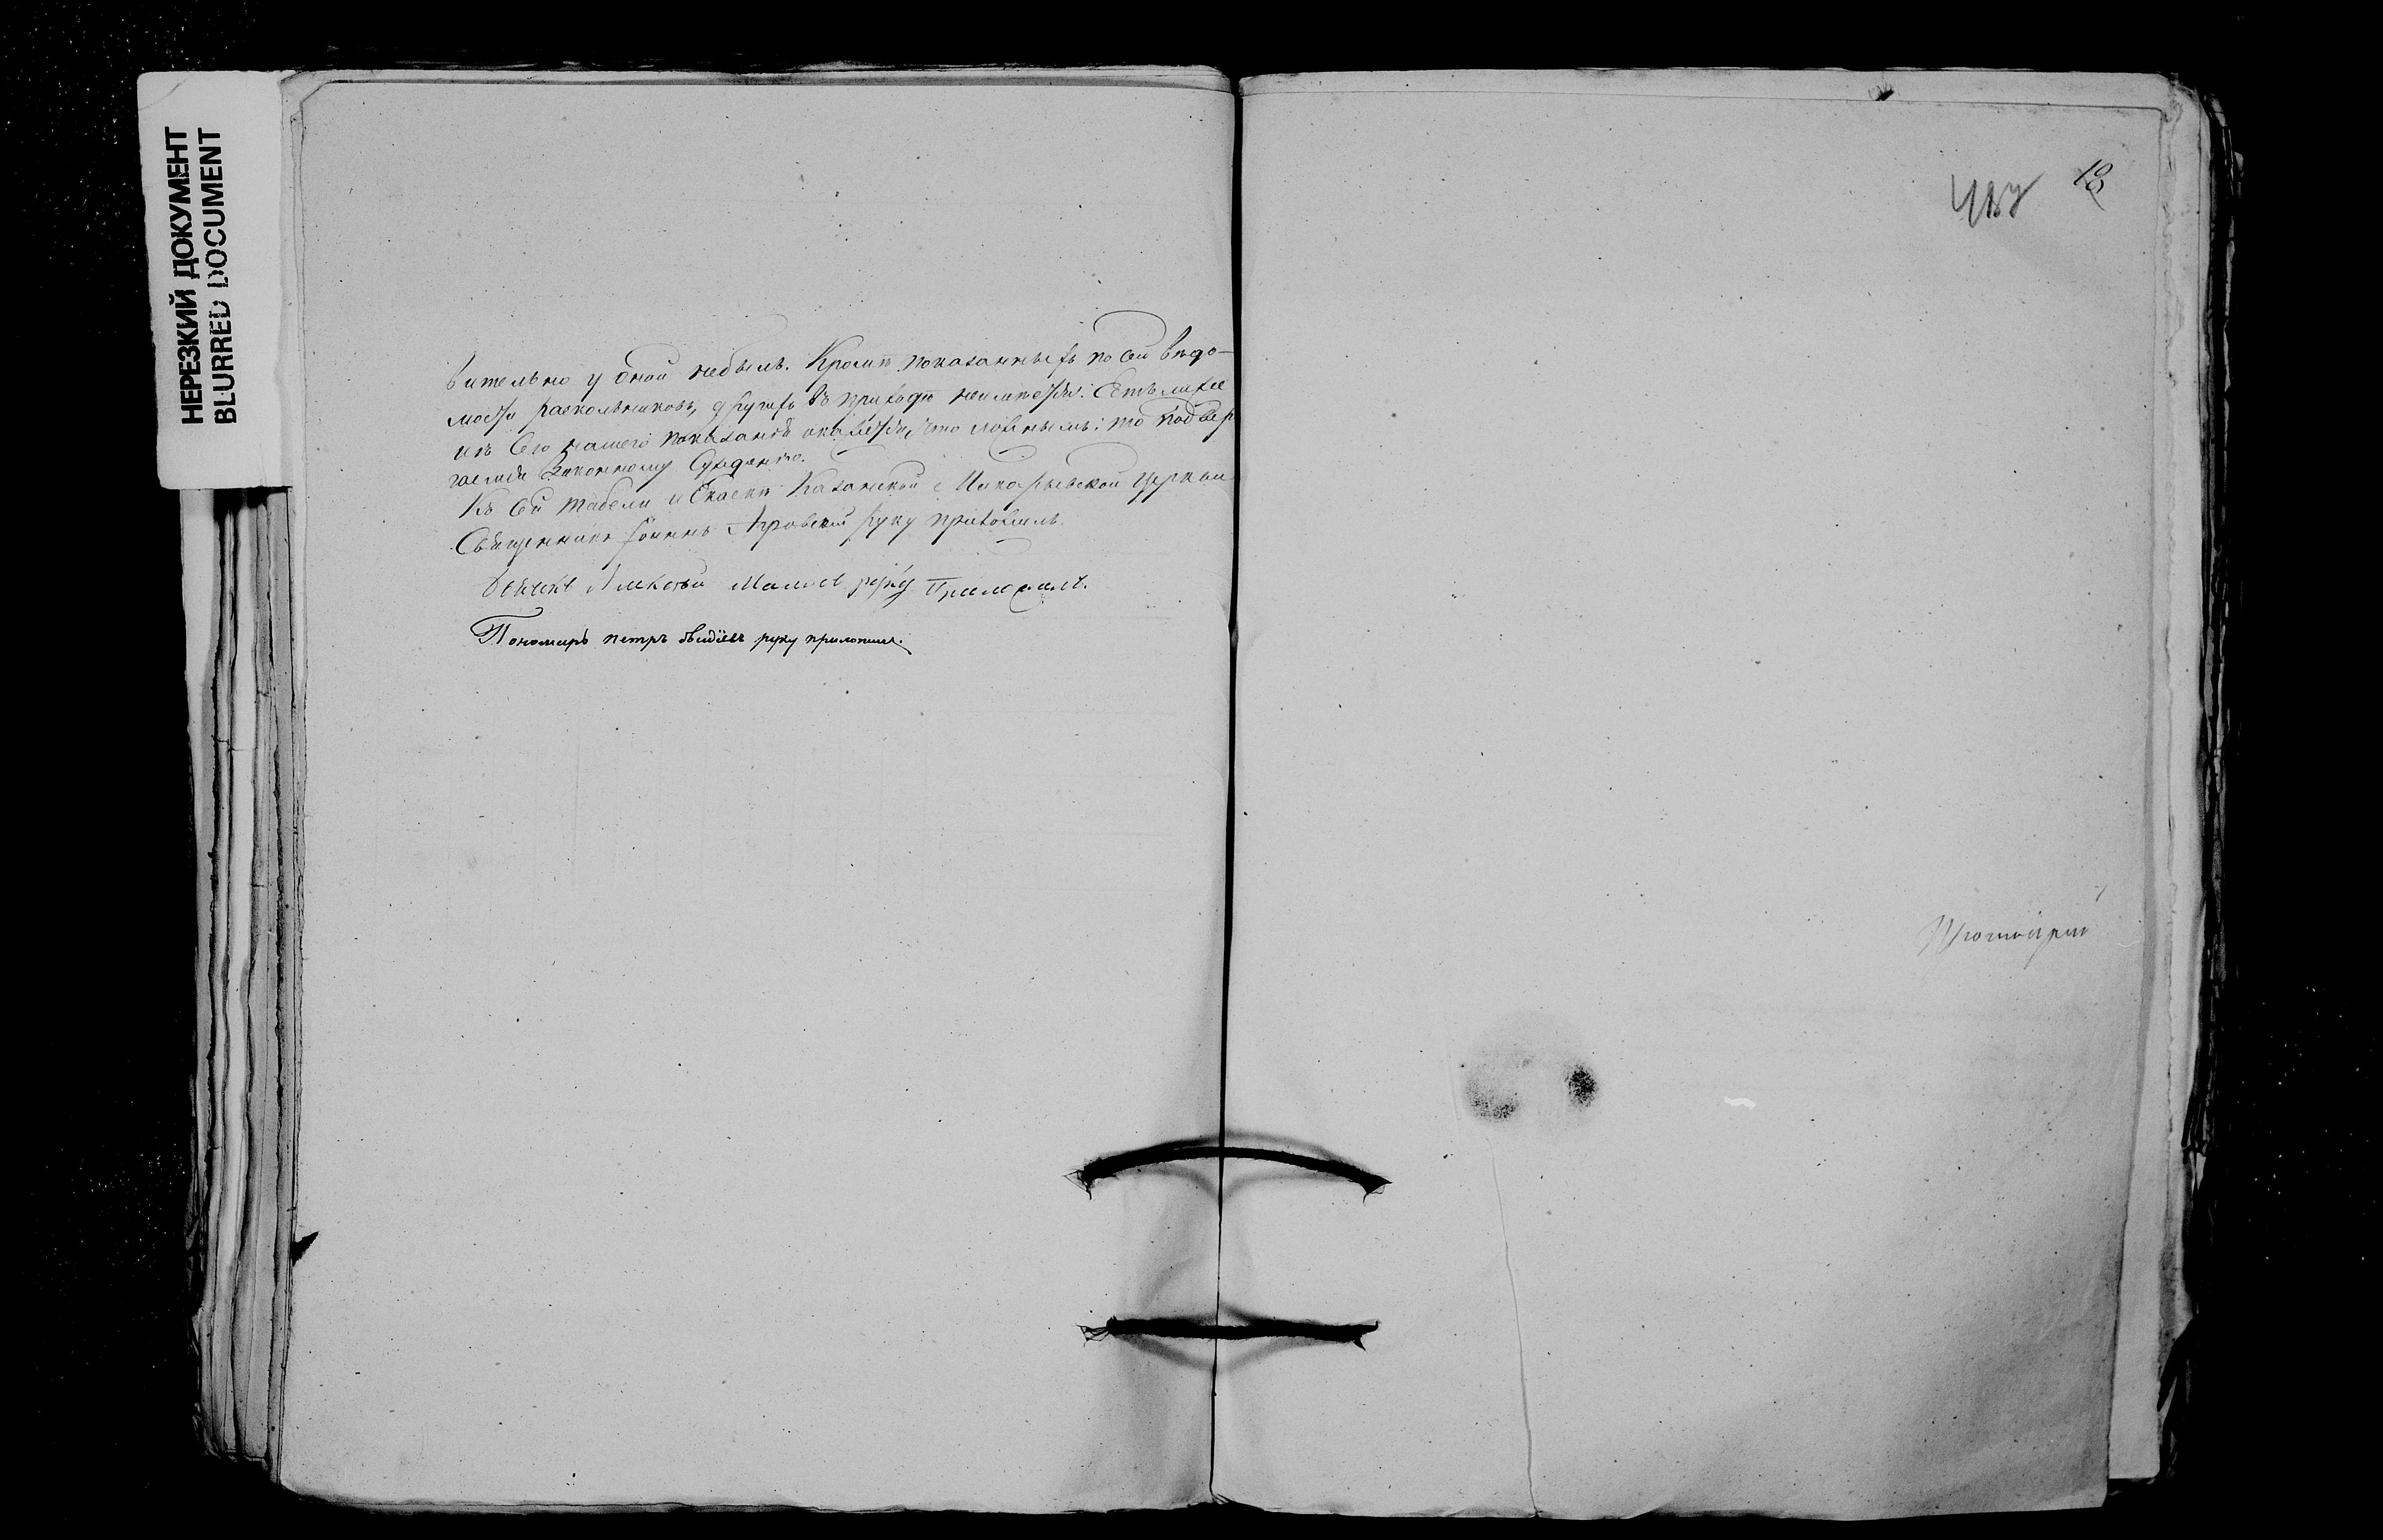 НЕРЕЗКИЙ ДОКУМЕНТ
BLURRED DOCUMENT
вительно у оной небылъ. Кромѣ показанныхъ по сей вѣдо-
мости раскольниковъ, другихъ въ приходѣ неимѣется. Естьлиже
изъ сего нашего показанія окажется, что ложнымъ: то подвер
гаемся Законному Сужденію.
Къ сей табели и сказкѣ Казанской Церкви
Священникъ Іоаннъ руку приложилъ.
Дьячекъ Алексѣй руку Приложилъ.
Пономарь петръ руку приложилъ.
18
Протоіерей